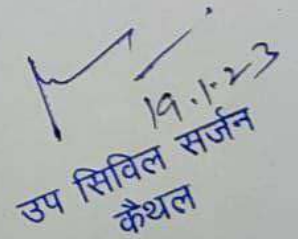 19.1.23
उप सिविल सर्जन
कैथल